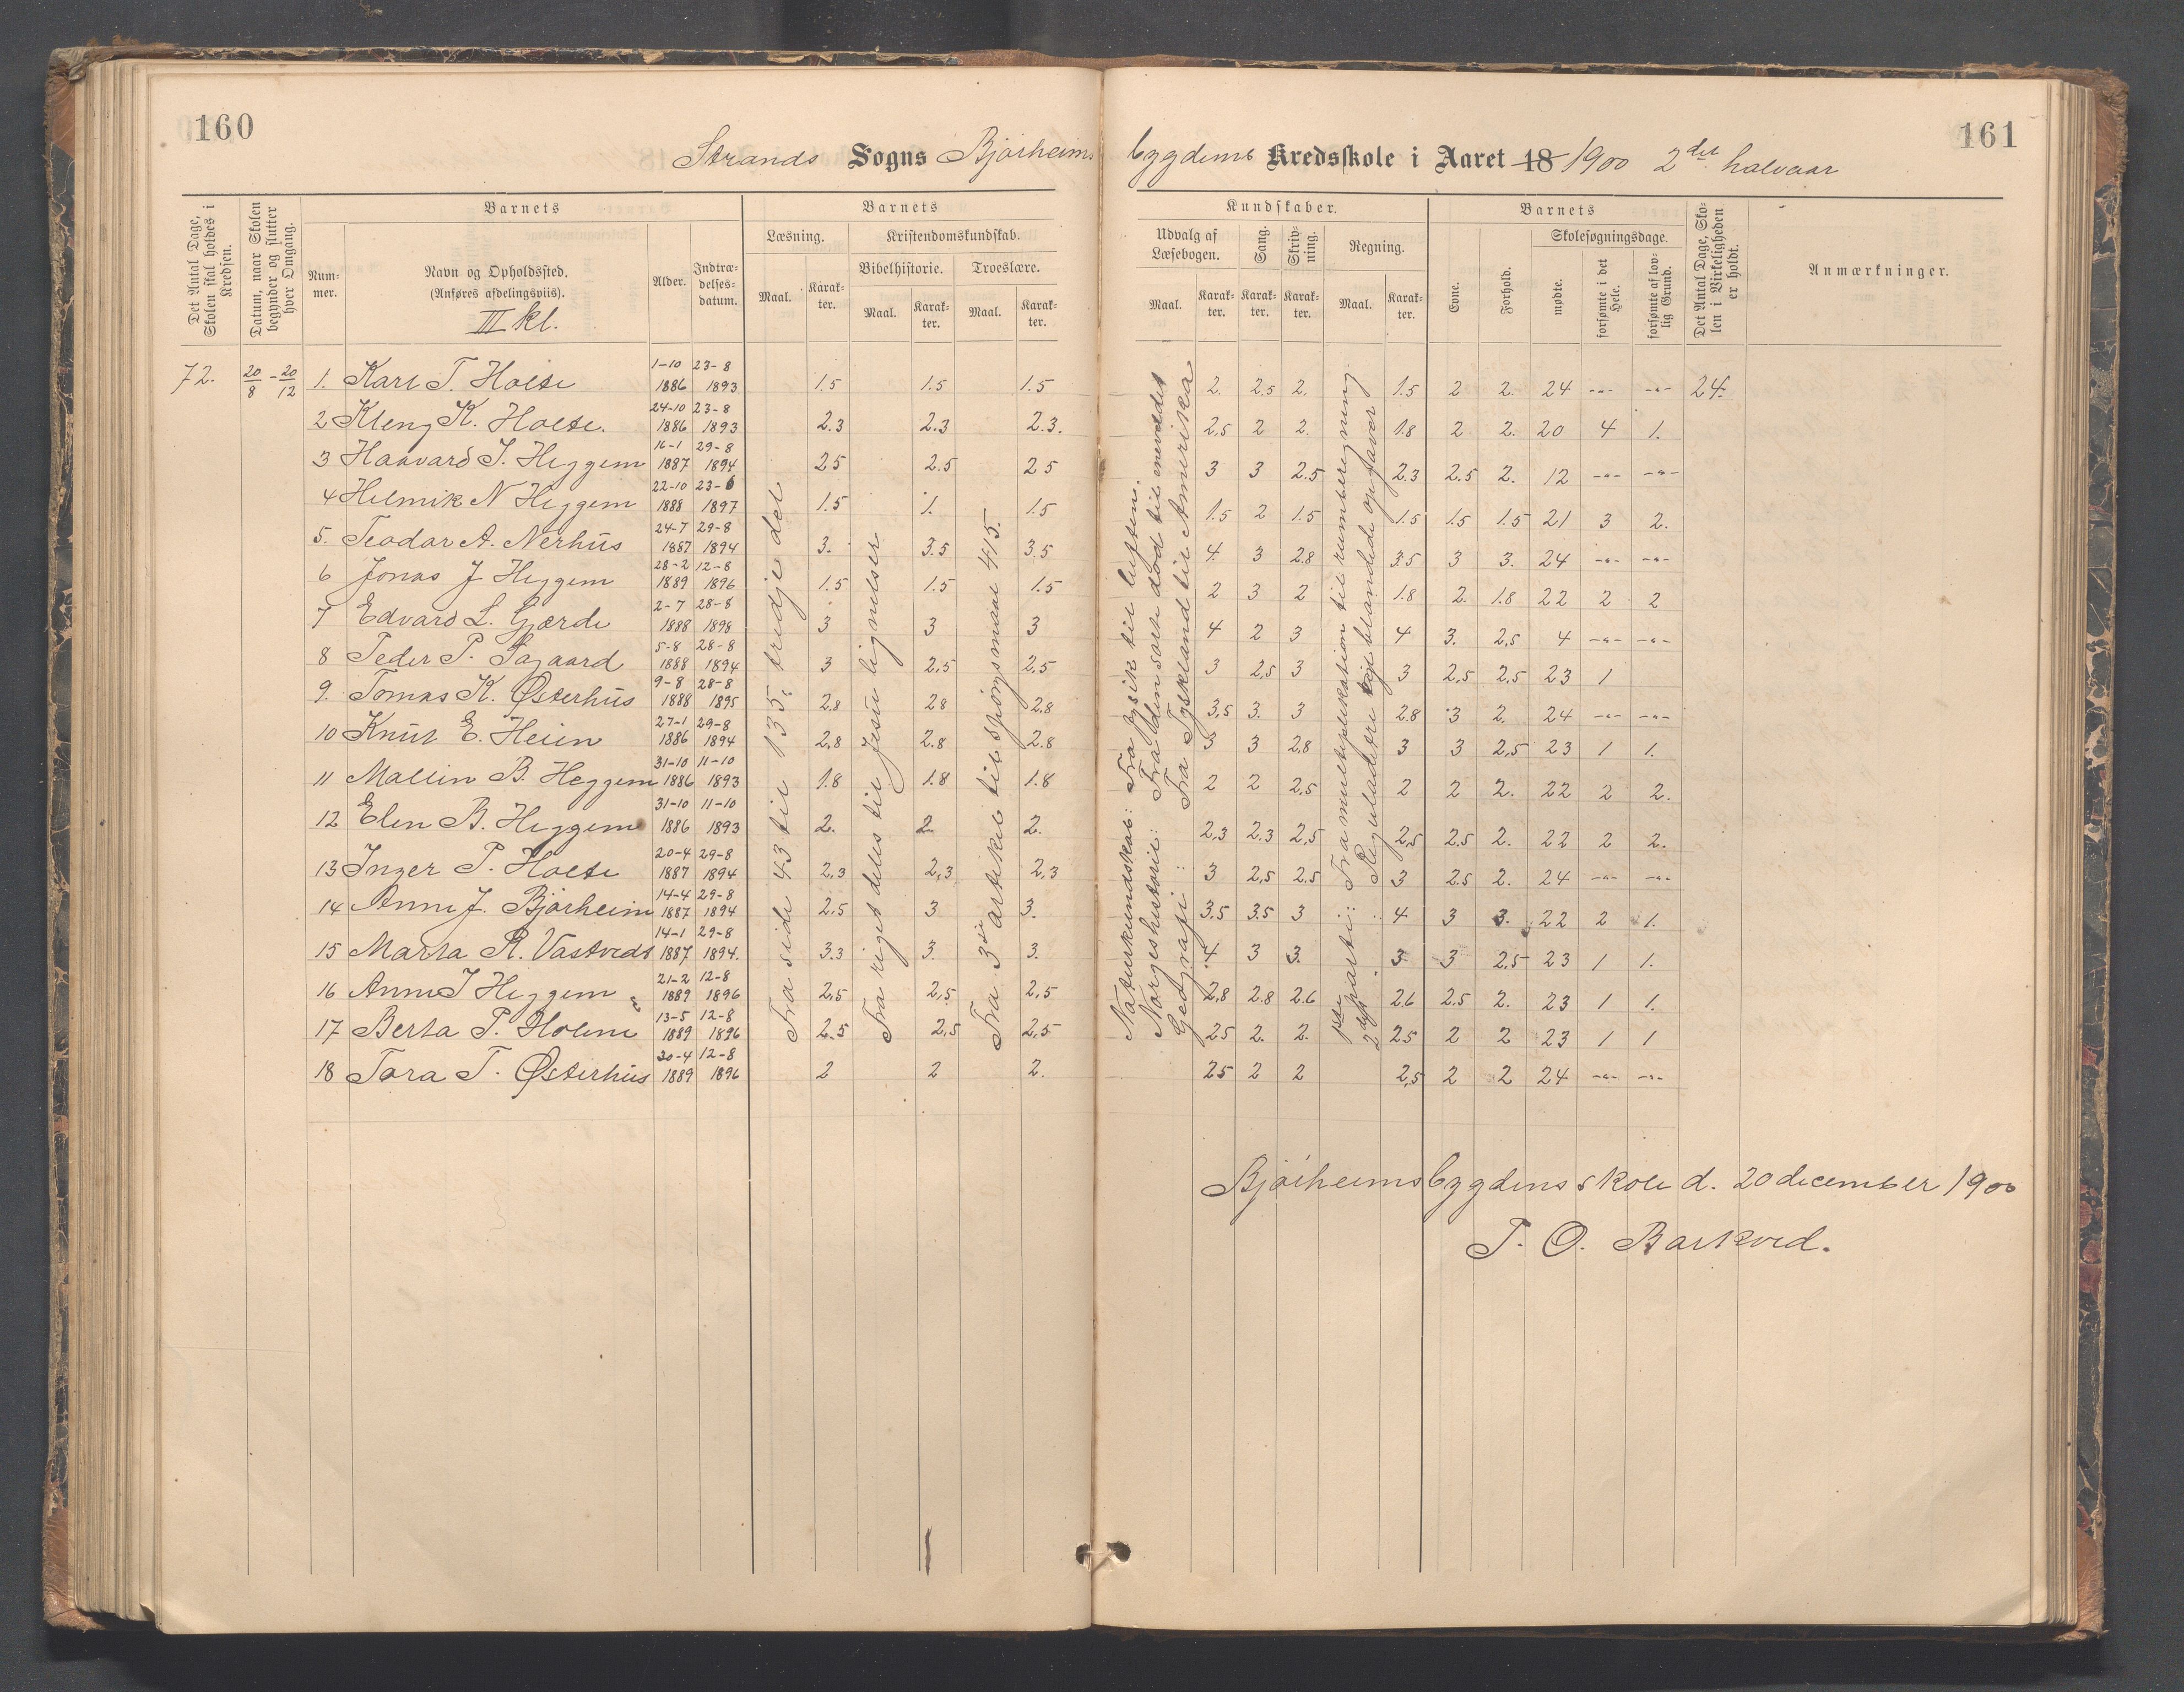 160
161
Strands Sogns Bjørheims bygdens Kredsskole i Aaret 18 1900 2det halvaar
Det Antal Dage, Skolen skal holdes i Kredsen.
Datum, naar Skolen begynder og slutter hver Omgang.
Barnets
Nummer.
Navn og Opholdssted.
(Anføres afdelingsviis).
III kl.
Alder.
Indtrædelsesdatum.
Barnets
Læsning.
Maal.
Karakter.
Kristendomskundskab.
Bibelhistorie.
Maal.
Karakter.
Troeslære.
Maal.
Karakter.
Kundskaber.
Udvalg af Læsebogen.
Maal.
Karakter.
Sang.
Karakter.
Skrivning.
Karakter.
Regning.
Maal.
Karakter.
Barnets
Evne.
Forhold.
Skolesøgningsdage.
mødte.
forsømte i det Hele.
forsømte af lovlig Grund.
Det Antal Dage, Skolen i Virkeligheden er holdt.
Anmærkninger.
72. 20/8 - 20/12 1. Karl T. Holte 1-10 1886 23-8 1893 1.5 1.5 1.5 2. 2.5 2. 1.5 2 2. 24 -"- -"- 24.
2 Kleng K. Holte. 24-10 1886 23-8 1893 2.3 2.3 2.3. 2,5 2 2. 1.8 2 2. 20 4 1.
3 Haavard I. Heggem 16-1 1887 29-8 1894 25 2.5 25 3 3 2.5 2.3 2.5 2. 12 -"- -"-
4 Helmik N Heggem 22-10 1888 23-6 1897 1.5 1. 1.5 1.5 2 1.5 1.5 1.5 1.5 21 3 2.
5. Teodor A. Nerhus 24-7 1887 29-8 1894 3. 3.5 3.5 4. 3 2.8 3.5 3 3. 24 -"- -"-
6 Jonas J Heggem 28-2 1889 12-8 1896 1.5 1.5 1.5 2 3 2 1.8 2. 1.8 22 2 2
7 Edvard L. Gjærde 2-7 1888 28-8 1898 3 3 3 4 2 3 4 3. 2,5 4 -"- -"-
8 Peder P. Sagaard 5-8 1888 28-8 1894 3 2,5 2,5 3 2,5 3 3 2,5 2,5 23 1
9. Tomas K. Østerhus 9-8 1888 28-8 1895 2,8 28 2,8 3,5 3. 3 2.8 3 2. 24 -"- -"-
10 Knut E. Heien 27-1 1886 29-8 1894 2,8 2.8 2.8 3 3 2,8 3 3 2,5 23 1 1.
11 Mallin B. Heggem 31-10 1886 11-10 1893 1.8 1.8 1.8 2 2 2,5 2 2 2. 22 2 2.
12 Elen B. Heggem 31-10 1886 11-10 1893 2. 2 2. 2,3 2.3 2,5 2,5 2.5 2. 22 2 2.
13 Inger P. Holte 20-4 1887 29-8 1894 2,3 2,3 2,3 3 2,5 2,5 3 2.5 2. 24 -"- -"-
14 Anne J. Bjørheim 14-4 1887 29-8 1894 2,5 3 3. 3.5 3.5 3 4 3 3. 22 2 1.
15 Marta R. Vastveds 14-1 1887 29-8 1894. 3.3 3. 3. 4 3 3. 3 3 2,5 23 1 1.
16 Anne I Heggem 21-2 1889 12-8 1896 2,5 2,5 2,5 2,8 2.8 2.6 2.6 2.5 2. 23 1 1.
17 Berta P. Holme 13-5 1889 12-8 1896 2.5 2,5 2,5 25 2. 2. 2.5 2 2 23 1 1
18 Tora T. Østerhus 30-4 1889 12-8 1896 2 2 2. 25 2 2 2,5 2 2 24 -"- -"-
Fra side 43 til 135, tredje del
Fra riget deles til Jesu lignelser
Fra 3die artikel til spørgsmaal 415.
Naturkundskab: Fra fysik til luften.
Norgeshistorie: Fra Mdensorte død til eneveldet
Geografi: Fra Tyskland til Amerika
1ste parti: Fra multiplikation til rumberegning.
2det " : Reguladetri og blandede opgaver
Bjørheimsbygdens skole d. 20 december 1900
T. O. Barkved.